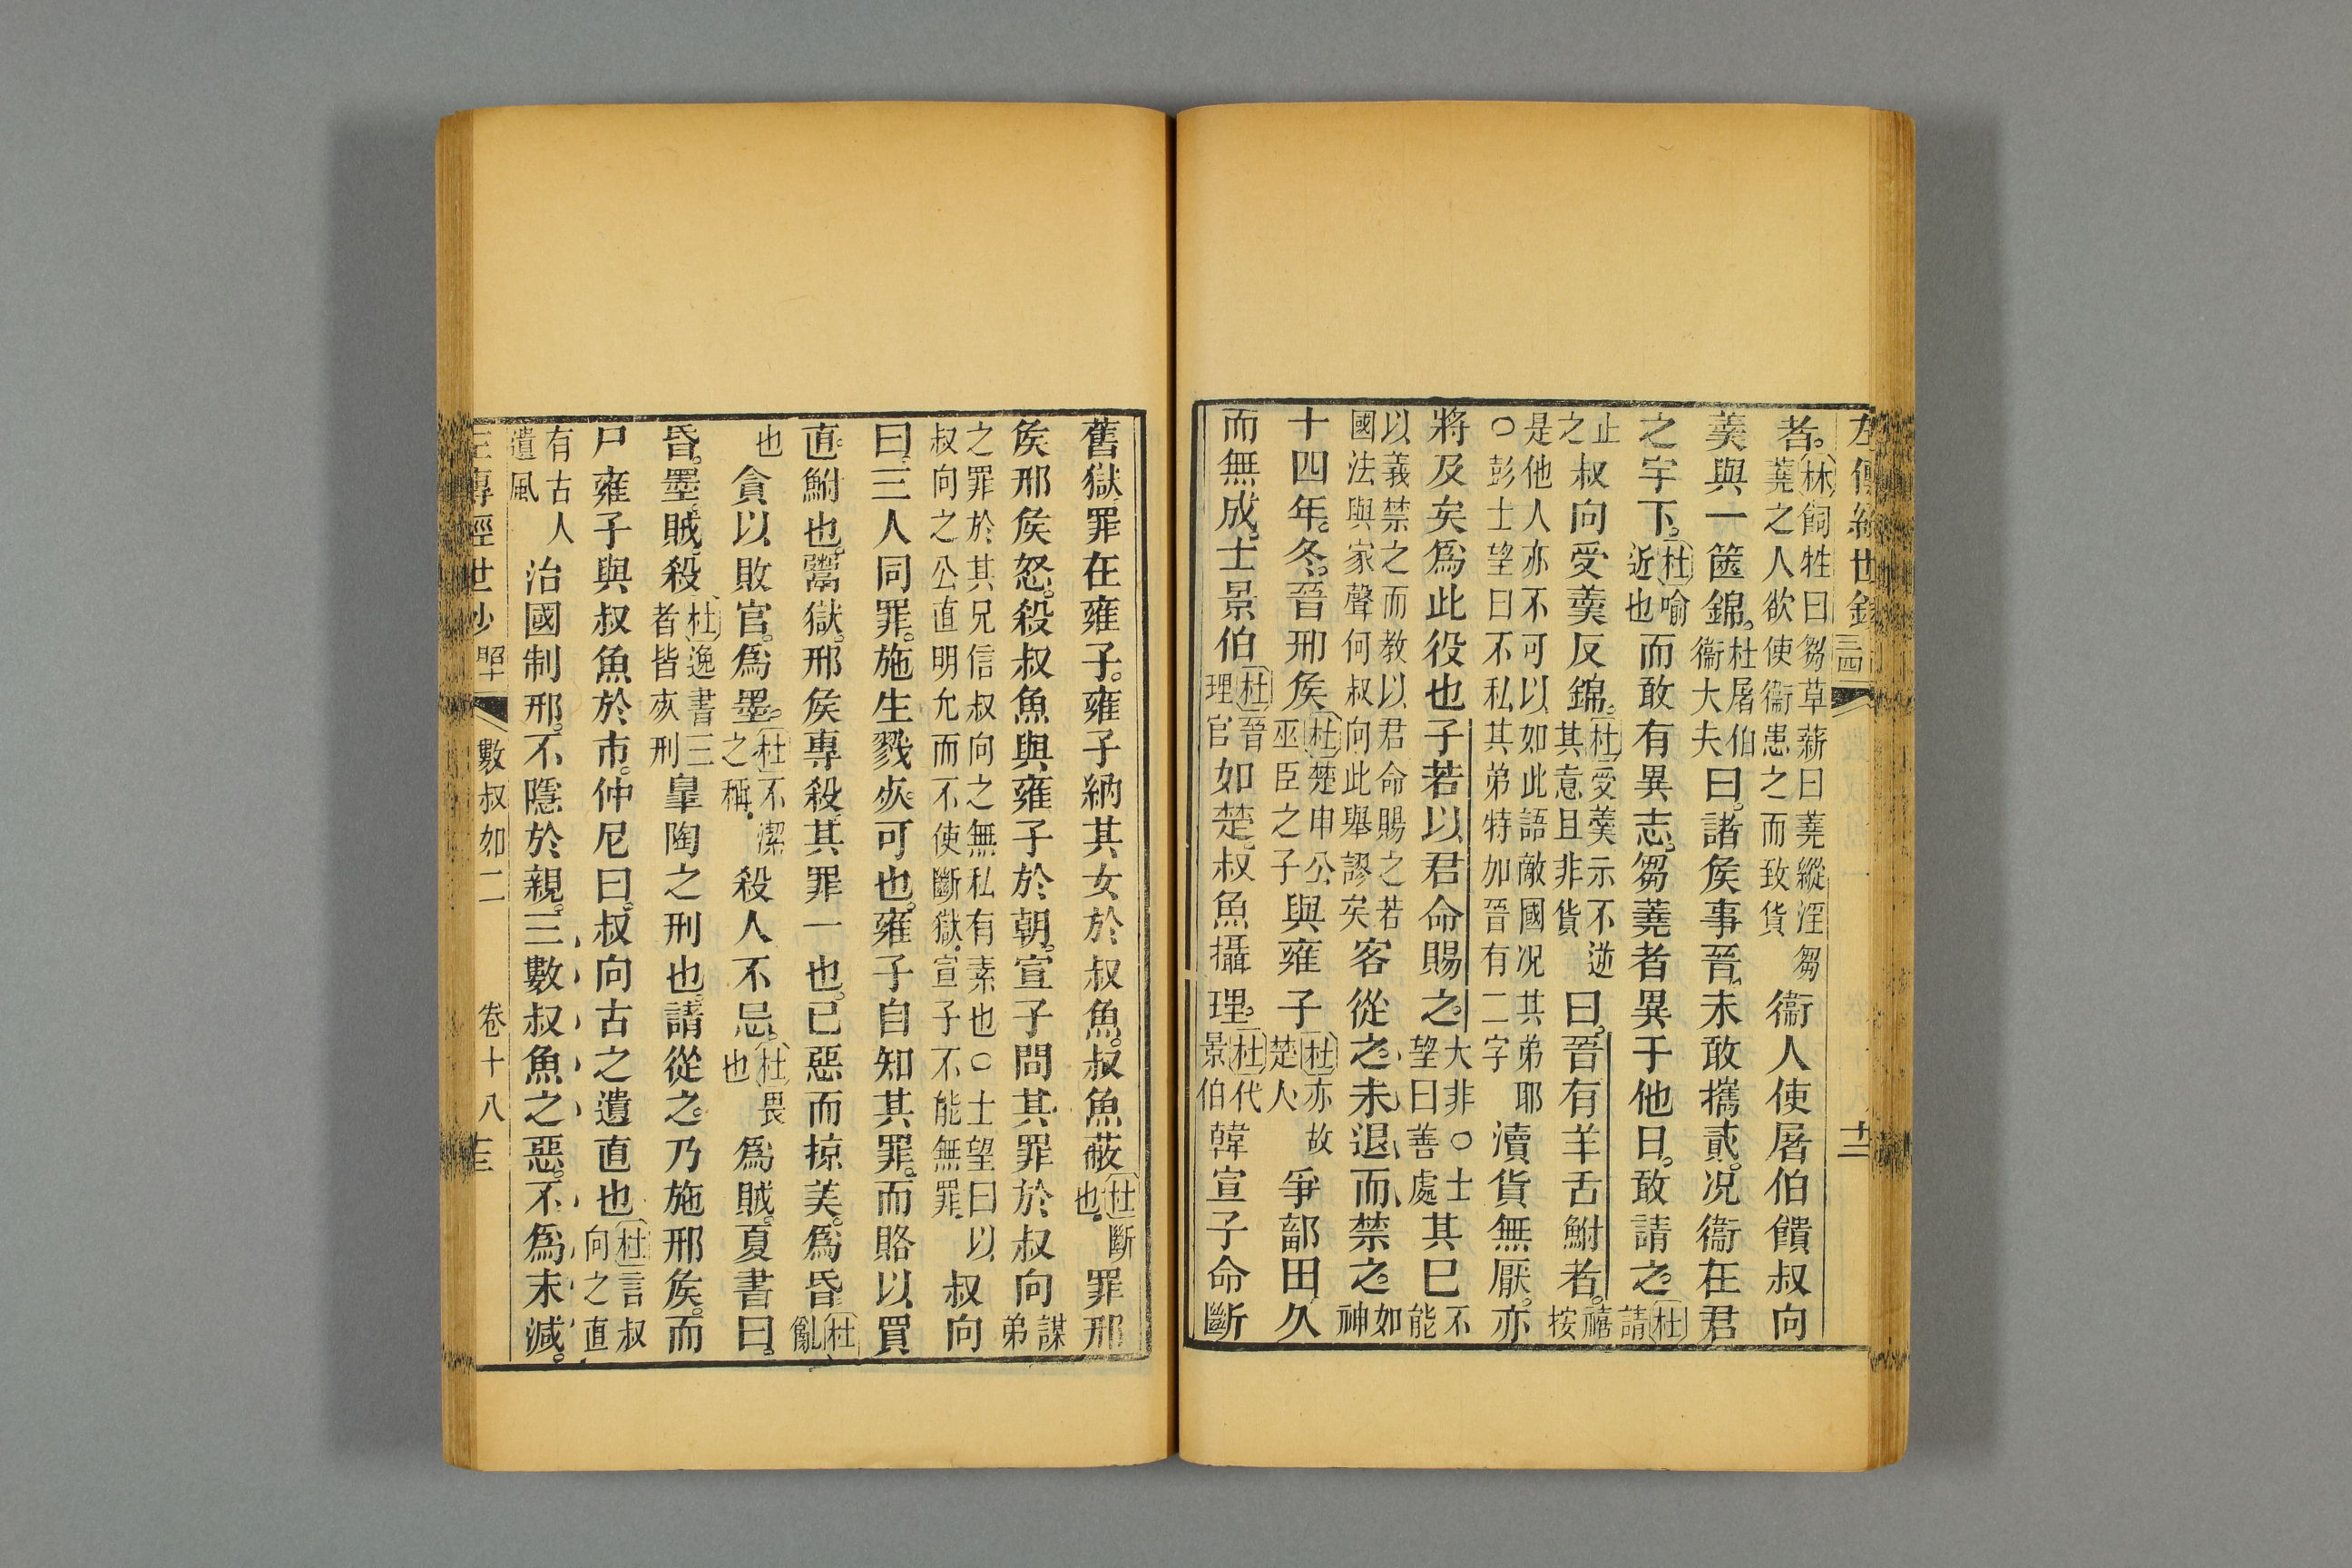 左傳經世鈔 三四 十二
者。林飼牲曰芻草薪曰蕘縱淫芻蕘之人欲使衞患之而致貨衞人使屠伯饋叔向
羹與一篋錦。杜屠伯衞大夫曰。諸矦事晉。未敢攜貳。况衞在君
之宇下。杜喻近也而敢有異志。芻蕘者異于他日。敢請之。杜請
止之叔向受羹反錦。杜受羹示不逆其意且非貨曰。晉有羊舌鮒者。禧按
是他人亦不可以如此語敵國况其弟耶○彭士望曰不私其弟特加晉有二字瀆貨無厭。亦
將及矣爲此役也子若以君命賜之。大非○士望曰善處其已不能
以義禁之而教以君命賜之若國法與家聲何叔向此舉謬矣客從之。未退而禁之。如神
十四年。冬。晉邢矦杜楚申公巫臣之子與雍子杜亦故楚人爭鄐田久
而無成。士景伯杜晉理官如楚。叔魚攝理。杜代景伯韓宣子命斷
舊獄罪在雍子。雍子納其女於叔魚。叔魚蔽杜斷也。罪邢
矦邢矦怒。殺叔魚與雍子於朝。宣子問其罪於叔向謀弟
之罪於其兄信叔向之無私有素也○士望曰以叔向之公直明允而不使斷獄。宣子不能無罪。叔向
曰。三人同罪。施生戮死可也。雍子自知其罪。而賂以買
直。鮒也鬻獄。邢矦專殺。其罪一也。已惡而掠美。爲昏杜亂
也貪以敗官。爲墨。杜不潔之稱。殺人不忌。杜畏也爲賊。夏書曰。
昏。墨。賊。殺杜逸書三者皆死刑臯陶之刑也。請從之。乃施邢矦。而
尸雍子與叔魚於市。仲尼曰。叔向古之遺直也杜言叔向之直
有古人遺風治國制邢。不隱於親。三數叔魚之惡。不爲末減。
左傳經世鈔 昭 數叔如二 卷十八 十三